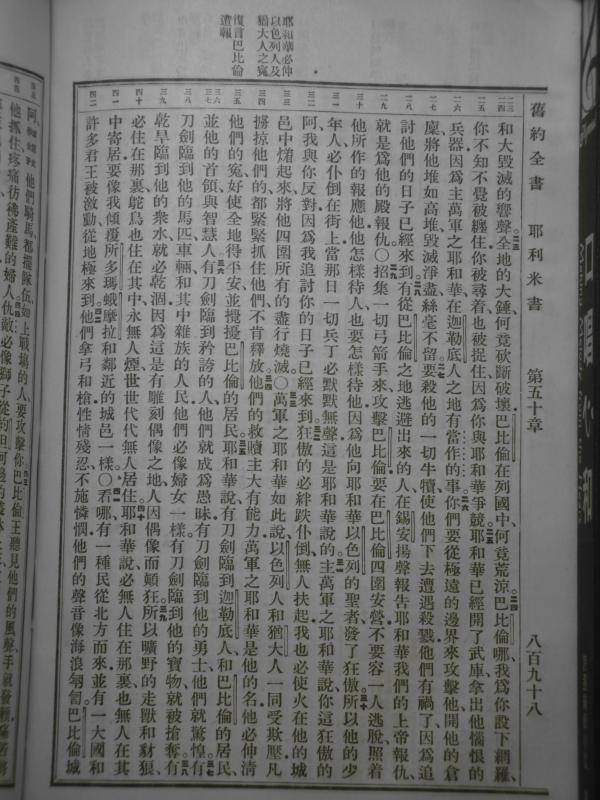 舊約全書 耶利米書 第五十章 八百九十八
和大毀滅的響聲全地的大錘何竟砍斷破壞巴比倫在列國中何竟荒涼巴比倫哪我爲你設下網羅
你不知不覺被纏住你被尋着也被捉住因爲你與耶和華爭競耶和華已經開了武庫拿出他惱恨的
兵器因爲主萬軍之耶和華在迦勒底人之地有當作的事你們要從極遠的邊界來攻擊他開他的倉
廩將他堆如高堆毀滅淨盡絲毫不留要殺他的一切牛犢使他們下去遭遇殺戮他們有禍了因爲追
討他們的日子已經來到有從巴比倫之地逃避出來的人在錫安揚聲報告耶和華我們的上帝報仇
就是爲他的殿報仇○招集一切弓箭手來攻擊巴比倫要在巴比倫四圍安營不要容一人逃脫照着
他所作的報應他他怎樣待人也要怎樣待他因爲他向耶和華以色列的聖者發了狂傲所以他的少
年人必仆倒在街上當那日一切兵丁必默默無聲這是耶和華說的主萬軍之耶和華說你這狂傲的
阿我與你反對因爲我追討你的日子已經來到狂傲的必絆跌仆倒無人扶起我也必使火在他的城
邑中起來將他四圍所有的盡行燒滅○萬軍之耶和華如此說以色列人和猶大人一同受欺壓凡
擄掠他們的都緊緊抓住他們不肯釋放他們的救贖主大有能力萬軍之耶和華是他的名他必伸清
他們的寃好使全地得平安並攪擾巴比倫的居民耶和華說有刀劍臨到迦勒底人和巴比倫的居民
並他的首領與智慧人有刀劍臨到矜誇的人他們就成爲愚昧有刀劍臨到他的勇士他們就驚惶有
刀劍臨到他的馬匹車輛和其中雜族的人民他們必像婦女一樣有刀劍臨到他的寶物就被搶奪有
乾旱臨到他的衆水就必乾涸因爲這是有雕刻偶像之地人因偶像而顛狂所以曠野的走獸和豺狼
必住在那裏鴕鳥也住在其中永無人煙世世代代無人居住耶和華說必無人住在那裏也無人在其
中寄居要像我傾覆所多瑪蛾摩拉和鄰近的城邑一樣○看哪有一種民從北方而來並有一大國和
許多君王被激動從地極來到他們拿弓和槍性情殘忍不施憐憫他們的聲音像海浪匉訇巴比倫城
阿他們騎馬都擺隊伍如上戰場的人要攻擊你巴比倫王聽見他們的風聲手就發軟痛苦將
他抓住疼痛彷彿產難的婦人仇敵必像獅子從約但河邊的叢林
耶和華必伸
以色列人及
猶大人之寃
復言巴比倫
遭報